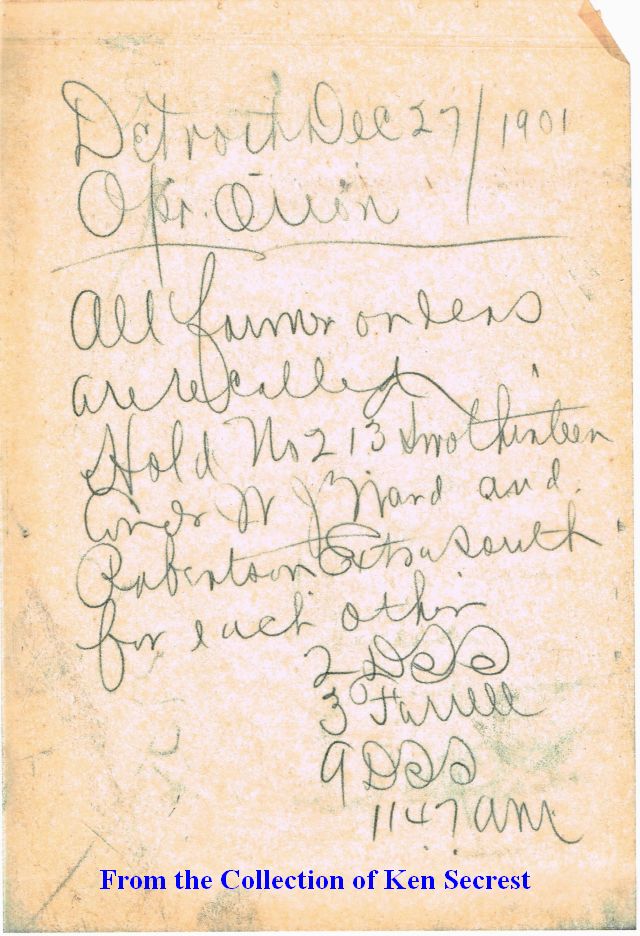 Detroit Dec 27/1901
Opr. Orion
All former orders
are recalled
Hold No 213 twothirteen
Condr W J Ward and
Robertson Extra South
for each other
2 DSS
3 Farrell
9 DSS
1147 am
From the Collection of Ken Secrest